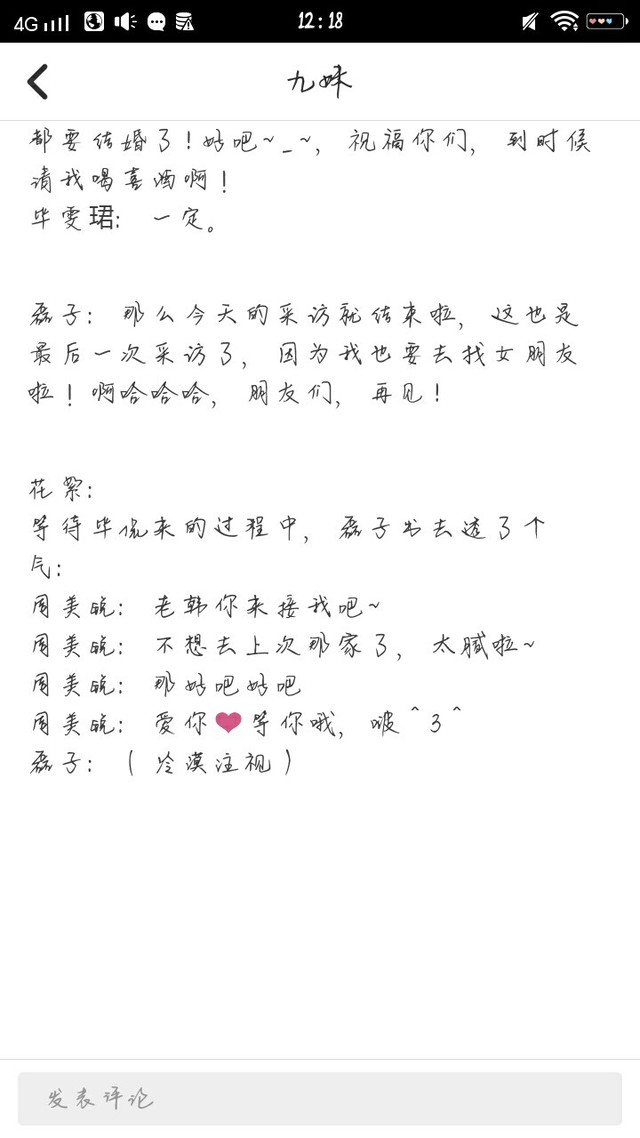 4G 12:18
九妹
都要结婚了!好吧~_~, 祝福你们, 到时候
请我喝喜酒啊!
毕雯珺: 一定。
磊子: 那么今天的采访就结束啦, 这也是
最后一次采访了, 因为我也要去找女朋友
啦! 啊哈哈哈, 朋友们, 再见!
花絮:
等待毕侃来的过程中, 磊子出去透了个
气:
周美皖: 老韩你来接我吧~
周美皖: 不想去上次那家了, 太腻啦~
周美皖: 那好吧好吧
周美皖: 爱你❤等你哦, 啵^3^
磊子: (冷漠注视)
发表评论